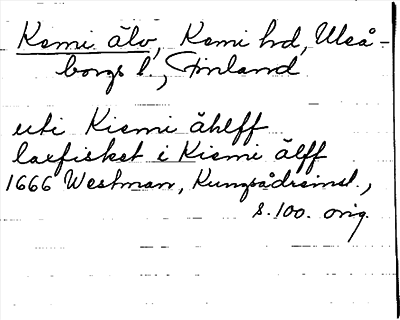 Kemi älv, Kemi hd, Uleå-
borgs l., Finland
uti Kiemi åhlff
laxfisket i Kiemi älff
1666 Westman, Kungsådreinst.,
s. 100. orig.